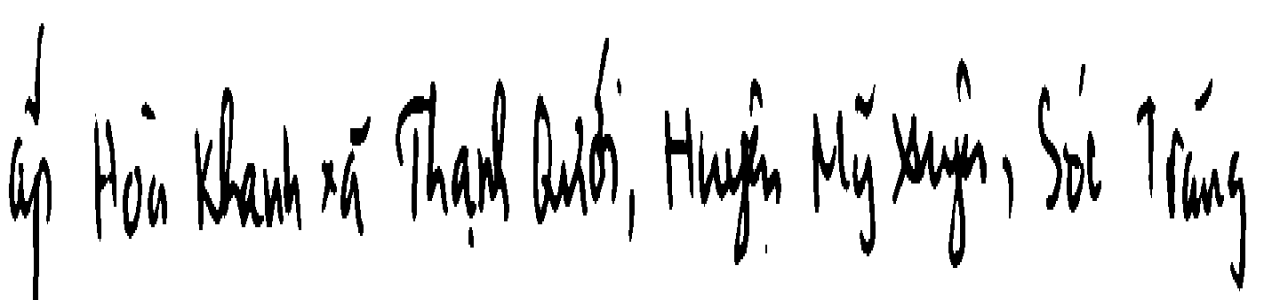 ấp Hòa Khanh xã Thạnh Quới, Huyện Mỹ Xuyên, Sóc Trăng